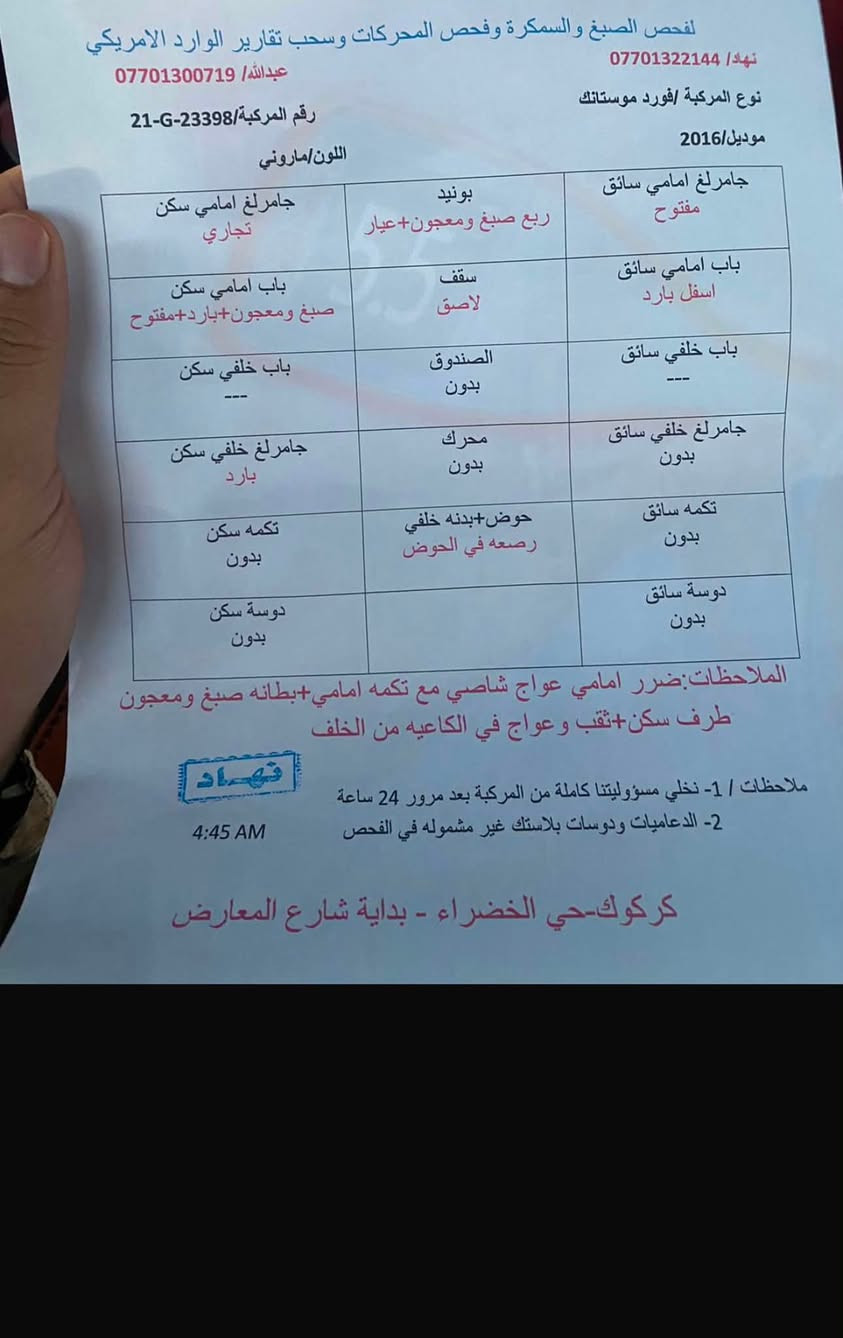 لفحص الصبغ والسمكرة وفحص المحركات وسحب تقارير الوارد الامريكي
نهاد/ 07701322144
عبدالله/ 07701300719
نوع المركبة /فورد موستانك
رقم المركبة/21-G-23398
موديل/2016
اللون/ماروني
جامرلغ امامي سائق
مفتوح
بونيد
ربع صبغ ومعجون+عيار
جامرلغ امامي سكن
تجاري
باب امامي سائق
اسفل بارد
سقف
لاصق
باب امامي سكن
صبغ ومعجون+بارد+مفتوح
باب خلفي سائق
---
الصندوق
بدون
باب خلفي سكن
---
جامرلغ خلفي سائق
بدون
محرك
بدون
جامرلغ خلفي سكن
بارد
تكمه سائق
بدون
حوض+بدنه خلفي
رصعه في الحوض
تكمه سكن
بدون
دوسة سائق
بدون
دوسة سكن
بدون
الملاحظات:ضرر امامي عواج شاصي مع تكمه امامي+بطانه صبغ ومعجون
طرف سكن+ثقب وعواج في الكاعيه من الخلف
نهاد
ملاحظات / 1- نخلي مسؤوليتنا كاملة من المركبة بعد مرور 24 ساعة
2- الدعاميات ودوسات بلاستك غير مشموله في الفحص
4:45 AM
كركوك-حي الخضراء - بداية شارع المعارض